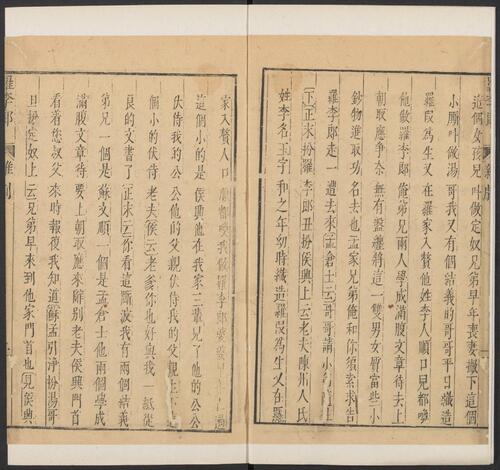 這個女孩兒叫做定奴兄弟早年喪妻撇下這個
小厮叫做湯哥我又有個結義的哥哥平日織造
羅段為生又在羅家入贅他姓李人順口兒都喚
他做羅李郎俺弟兄兩人學成滿腹文章待去上
朝取應爭奈無有盤纏將這一雙男女質當些小
鈔物進取功名去也孟家兄弟俺和你索求告
羅李郎走一遭去來孟倉士云哥哥請小
下正末扮羅李郎丑扮侯興上云老夫陳州人氏
姓李名玉字和之年幼時織造羅段為生又在羅
家入贅人口順都喚我做羅李郎婆婆
這個小的是侯興他在我家三輩兒了他的公公
伏侍我的公公他的父親伏侍我的父親
個小的伏侍老夫侯云老爹你也好與我一紙從
良的文書了正末云你看這厮波我有兩個結義
弟兄一個是蘇文順一個是孟倉士他兩個學成
滿腹文章待要上朝取應來辭別老夫侯興門首
看着您叔父來時報復我知道蘇孟引淨扮湯哥
旦扮定奴上云兄弟早來到他家門首也見侯興
羅李郎
雜劇